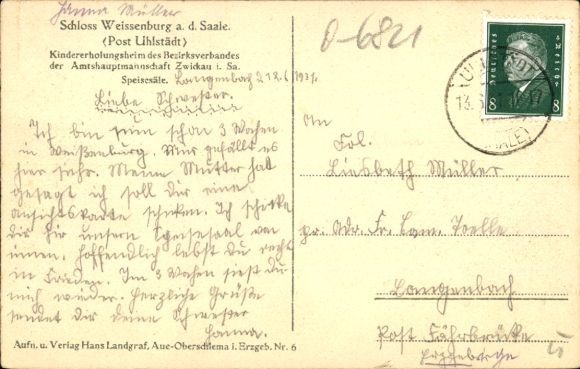 Hanna Müller
Schloss Weissenburg a. d. Saale.
(Post Uhlstädt)
Kindererholungsheim des Bezirksverbandes
der Amtshauptmannschaft Zwickau i. Sa.
Speisesäle.
Langenbach d 12.6 1931.
Liebe Schwester.
Ich bin nun schon 3 Wochen
in Weißenburg. Mir gefällt es
hier sehr. Meine Mutter hat
gesagt ich soll dir eine
Ansichtskarte schicken. Ich schicke
dir hir unsern Speisesaal von
innen. Hoffendlich lebst du recht
in Frieden. In 3 Wochen siest du
mich wieder. Herzliche Grüße
sendet dir deine Schwester
Hanna.
Aufn. u. Verlag Hans Landgraf, Aue-Oberschlema i. Erzgeb. Nr. 6
0-6821
Deutsches Reich
8 8
(SAALE)
An
Frl.
Liesbeth Müller
pr. Adr. Fr. Lam.
Langenbach
Post Fährbrücke
Erzgebirge